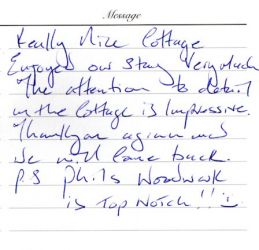 Message
Really Nice Cottage
Enjoyed our stay Very Much
The attention to detail
in the Cottage is Impressive.
Thankyou again and
we will come back.
P.S Phil's Woodwork
is Top Notch!!